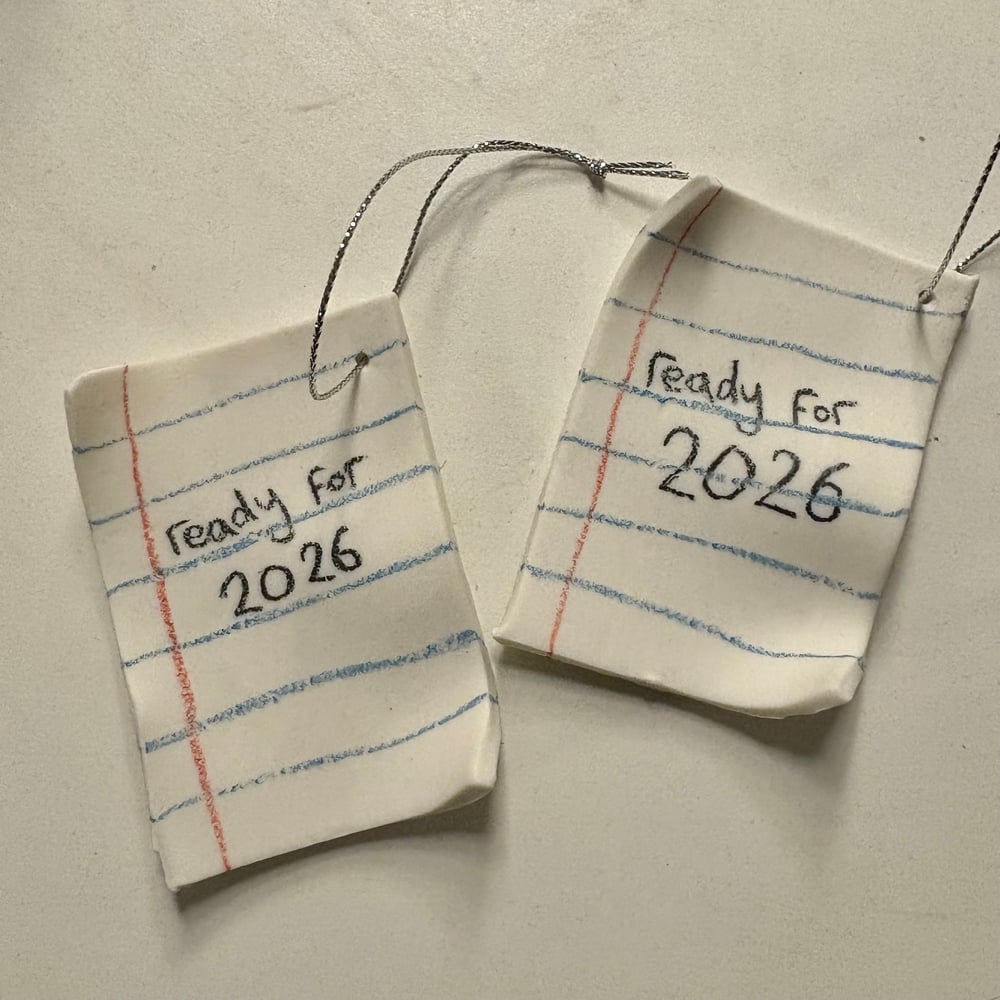 ready for
2026
ready for
2026